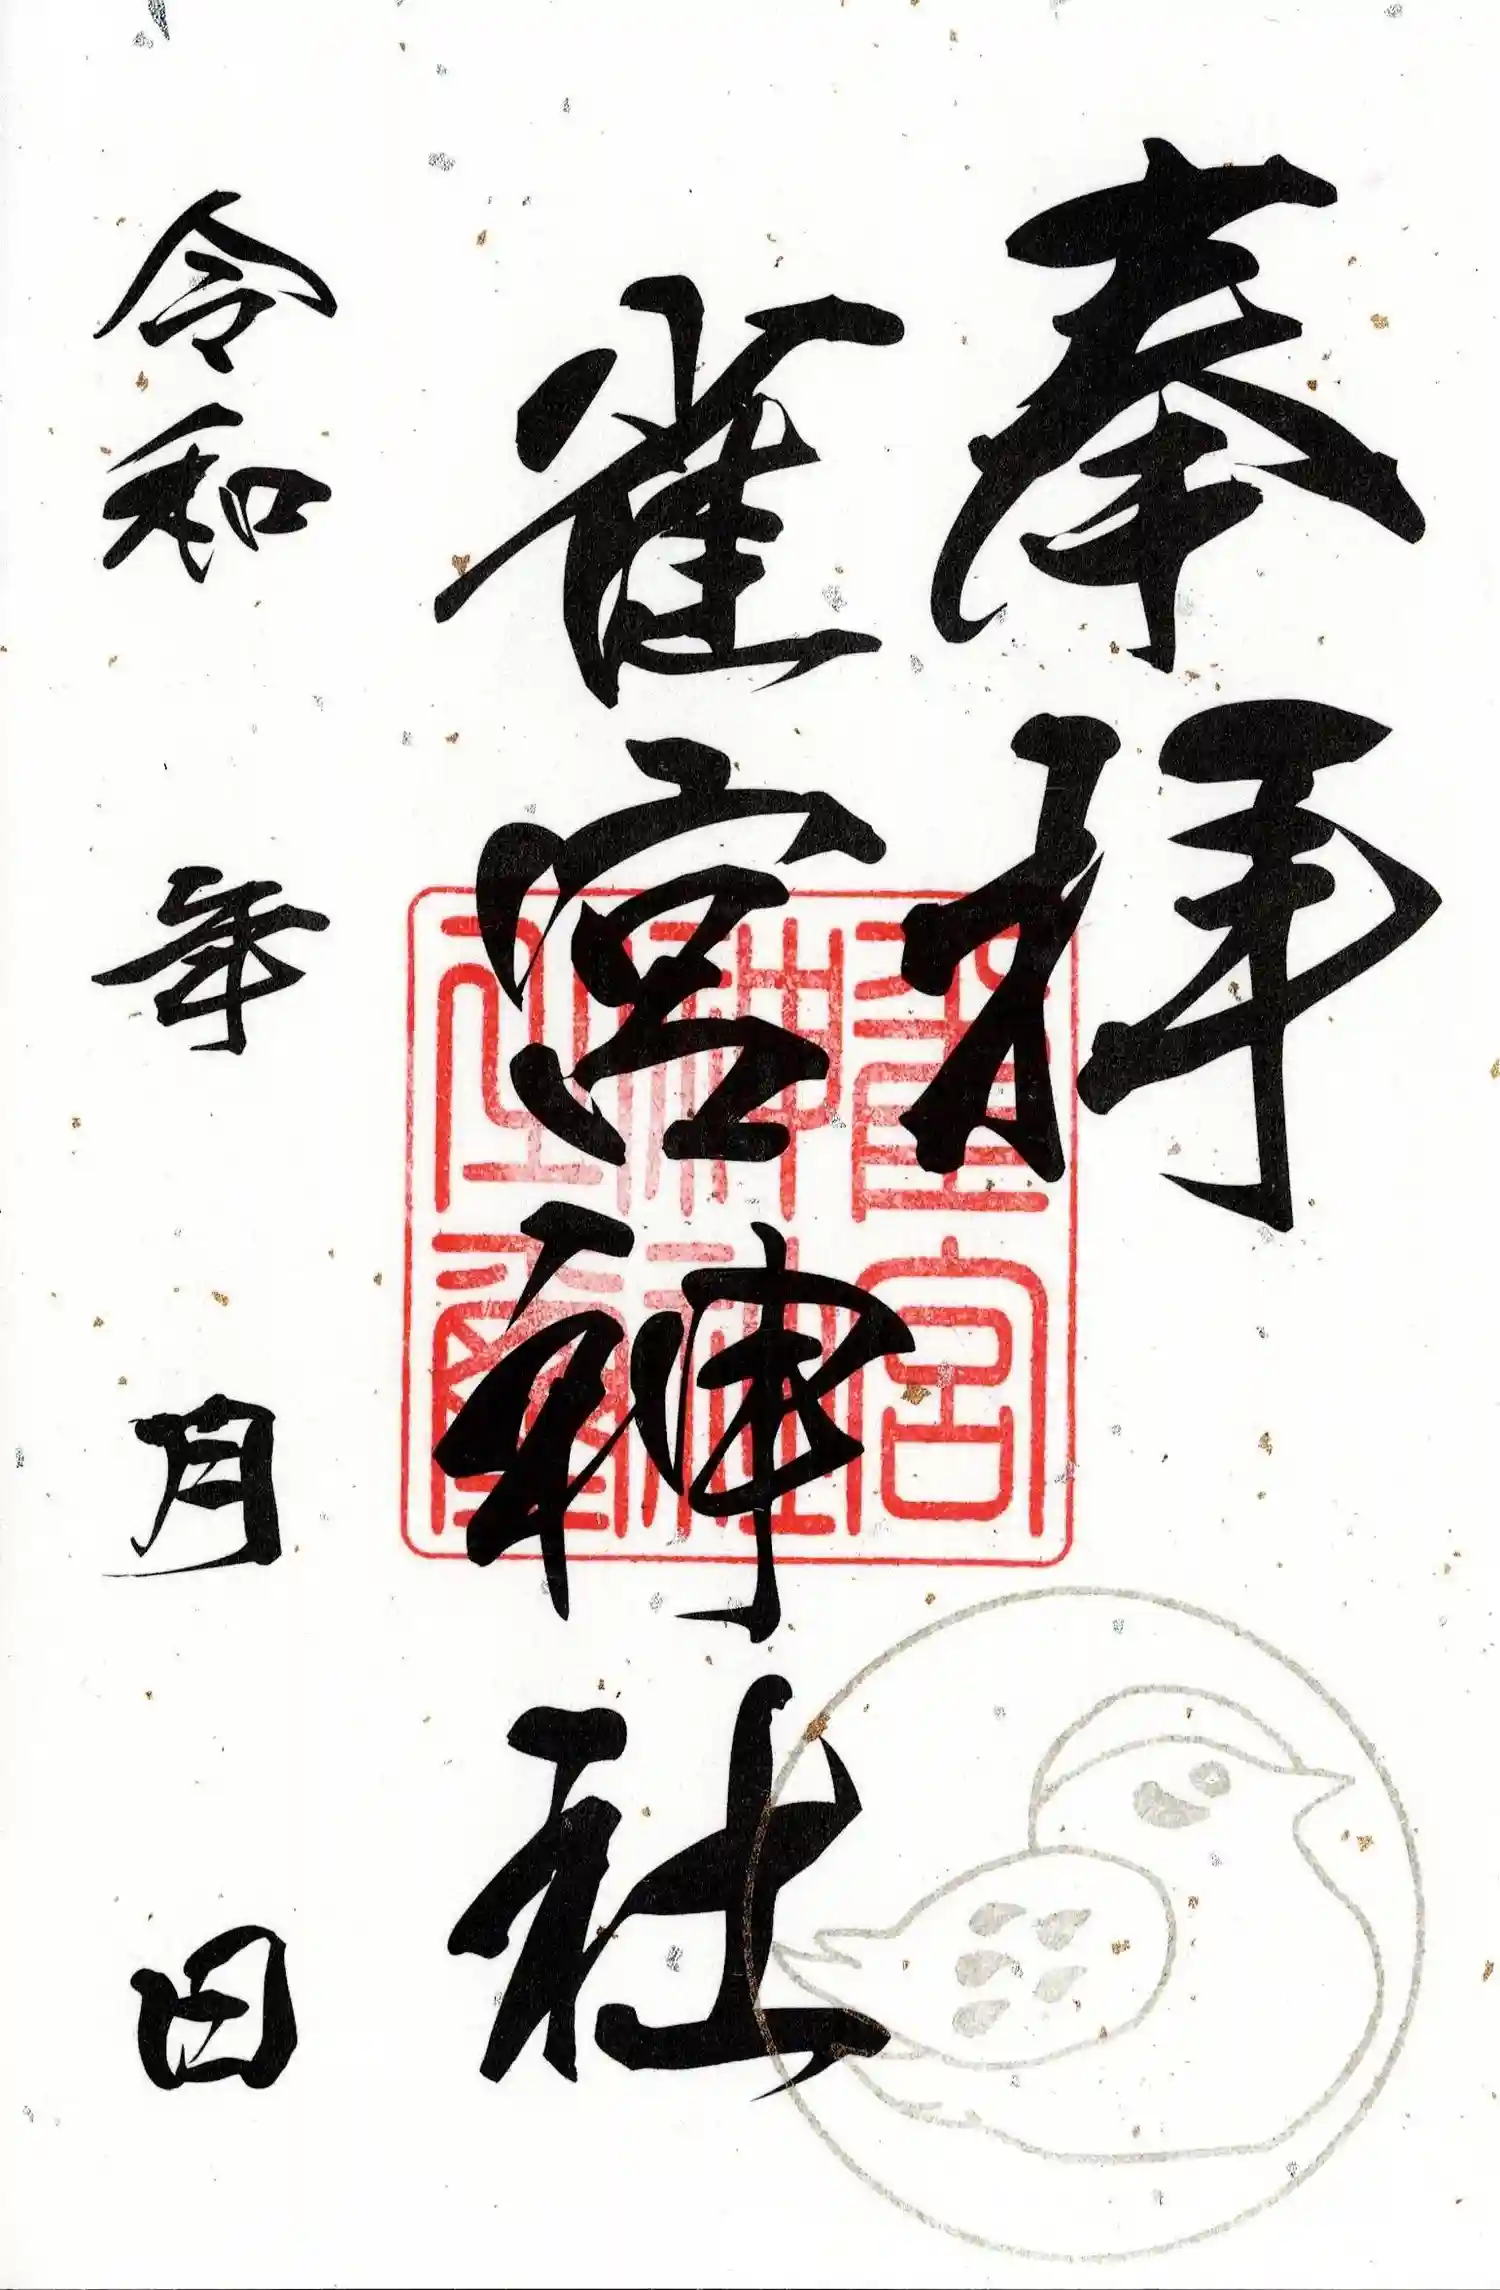 奉拝
雀宮神社
雀宮
神社
之璽
令和 年 月 日